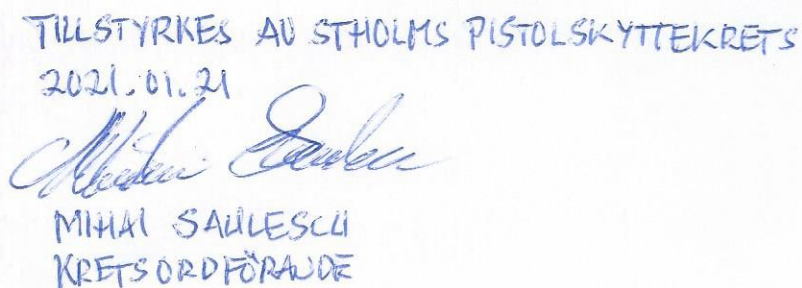 TILLSTYRKES AV STHOLMS PISTOLSKYTTEKRETS
2021.01.21
Mihai Saulescu
MIHAI SAULESCU
KRETSORDFÖRANDE